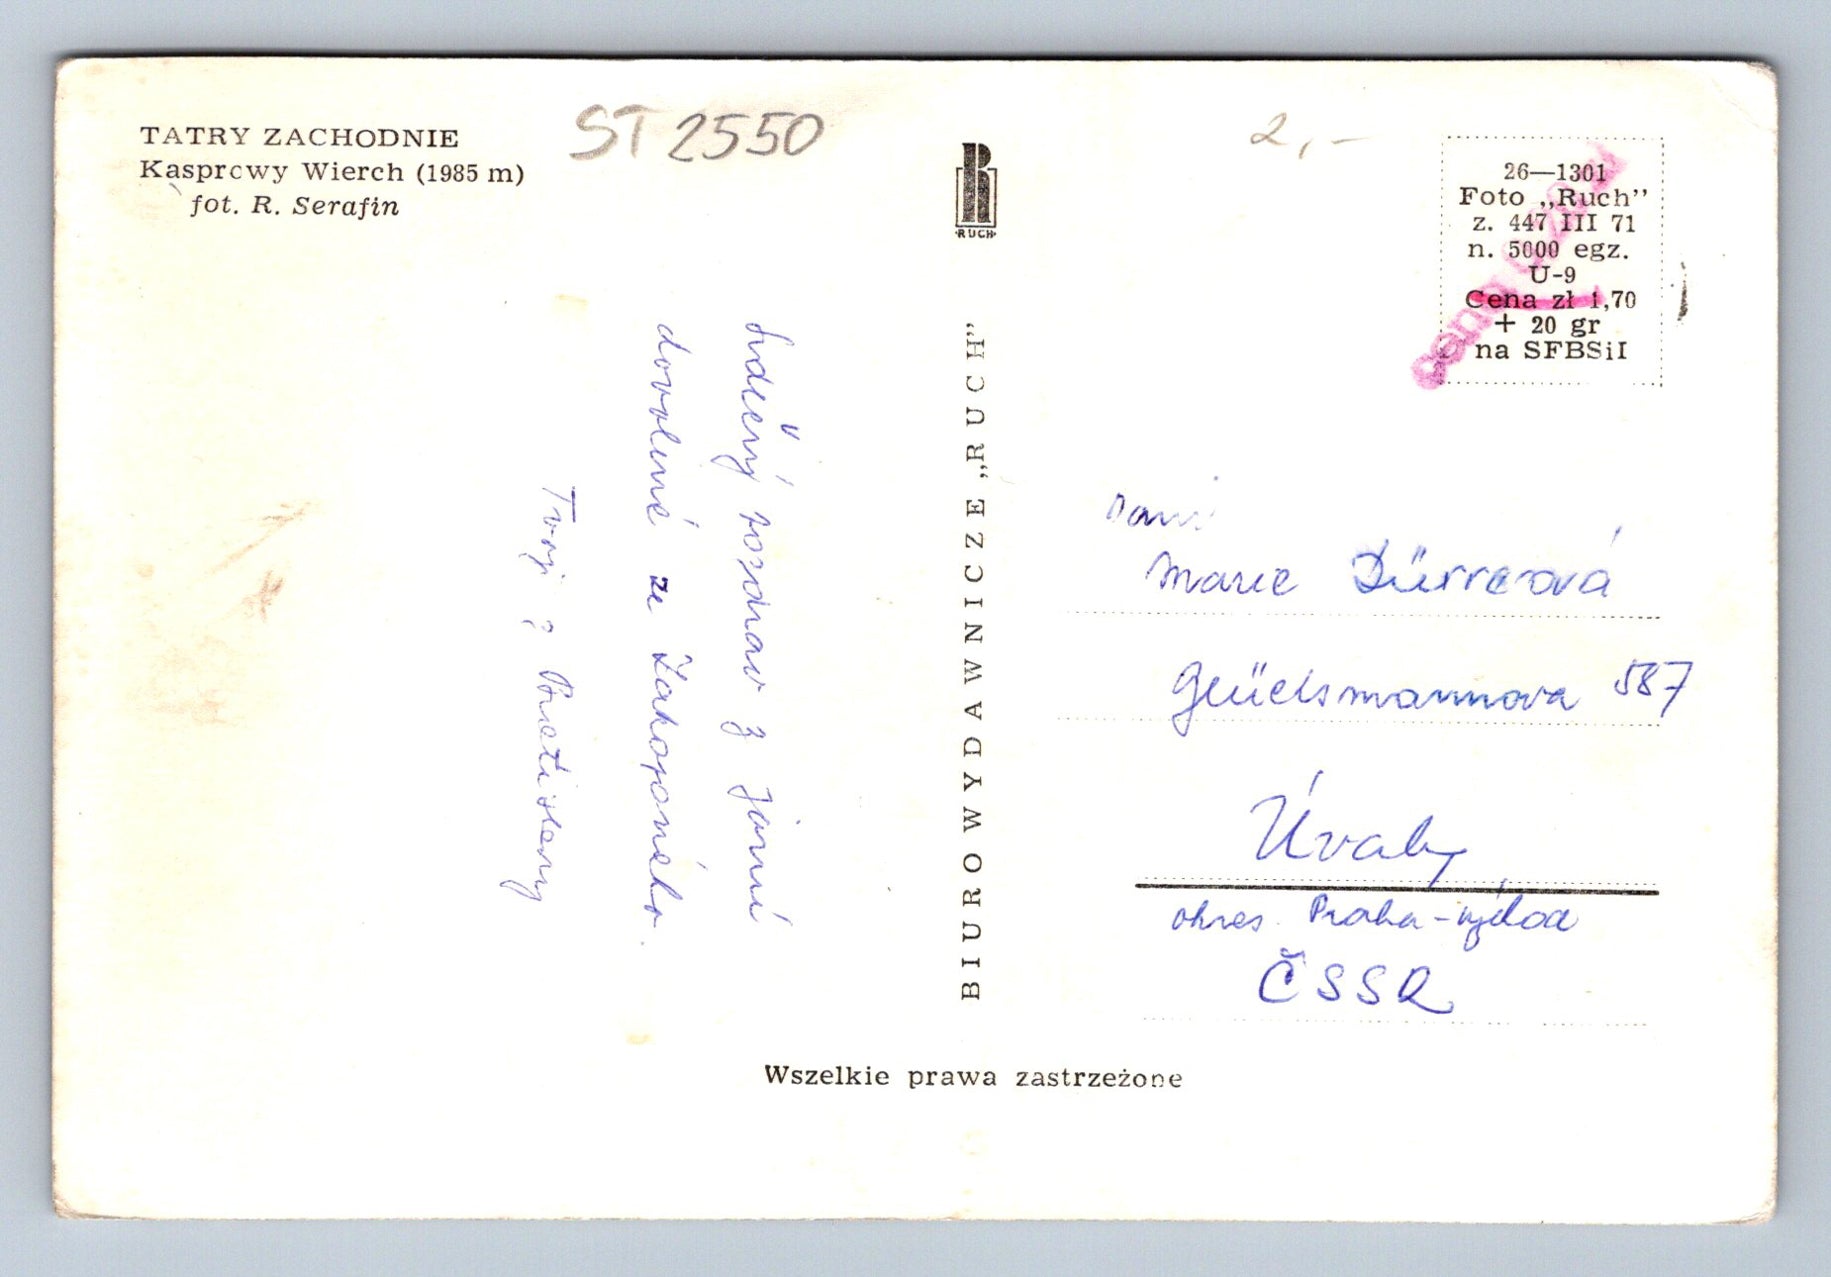 TATRY ZACHODNIE
Kasprowy Wierch (1985 m)
fot. R. Serafin
ST 2550
2,-
RUCH
26—1301
Foto „Ruch”
z. 447 III 71
n. 5000 egz.
U-9
Cena zł 1,70
+ 20 gr
na SFBSiI
Srdečný pozdrav z jarní
dovolené ze Zakopaného.
Tvoji z Bratislavy
BIURO WYDAWNICZE „RUCH”
Paní
Marie Dürrerová
Glücksmannova 587
Úvaly
okres Praha-východ
ČSSR
Wszelkie prawa zastrzeżone